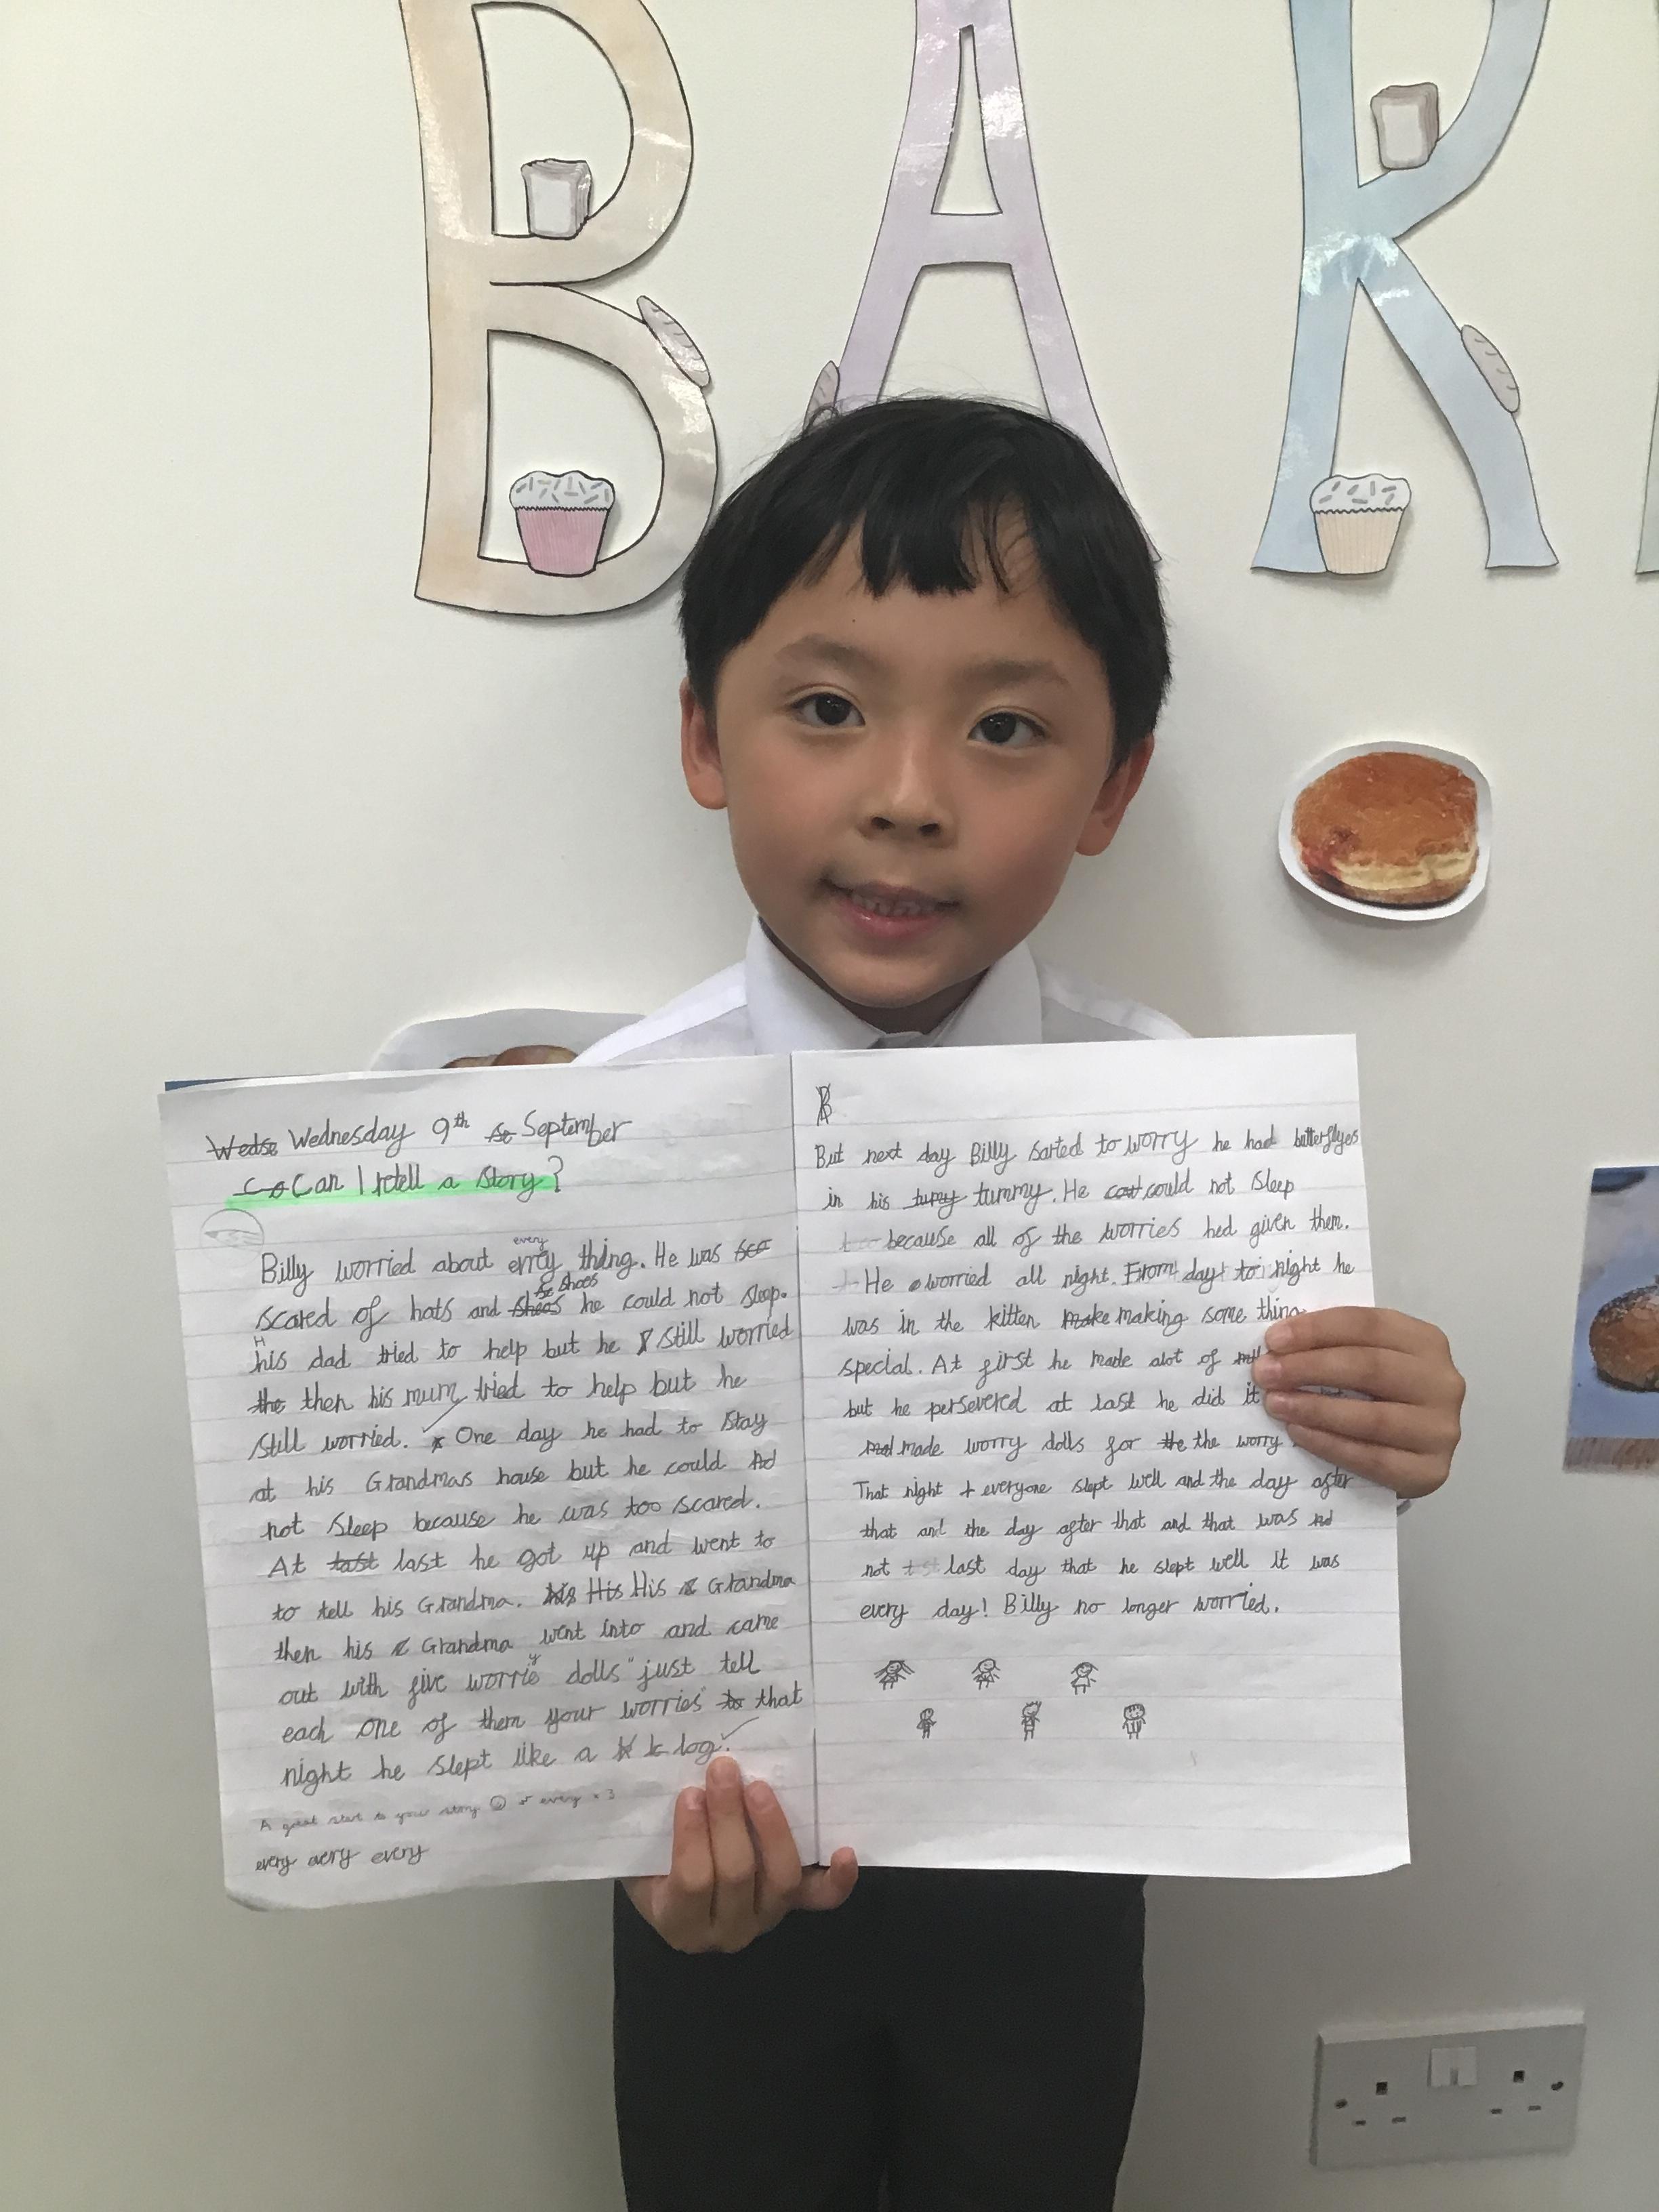 BAK
Wedse Wednesday 9th Se September
Co Can I retell a Story?
every
Billy worried about errey thing. He was sca
Se shoes
scared of hats and sheos he could not sleep.
H
his dad tried to help but he still worried
the then his mum tried to help but he
still worried. One day he had to stay
at his Grandmas house but he could
not sleep because he was too scared.
At last he got up and went to
to tell his Grandma. his His His Grandma
then his Grandma went into and came
y
out with five worrie dolls "just tell
each one of them your worries" to that
night he slept like a log.
A great start to your story every x 3
every every every
B
But next day Billy sarted to worry he had butterflyes
in his tumy tummy. He could not sleep
because all of the worries hed given them.
He worried all night. From day to night he
was in the kitten make making some thing
special. At first he made alot of
but he persevered at last he did it
made worry dolls for the the worry
That night everyone slept well and the day after
that and the day after that and that was
not last day that he slept well it was
every day! Billy no longer worried.